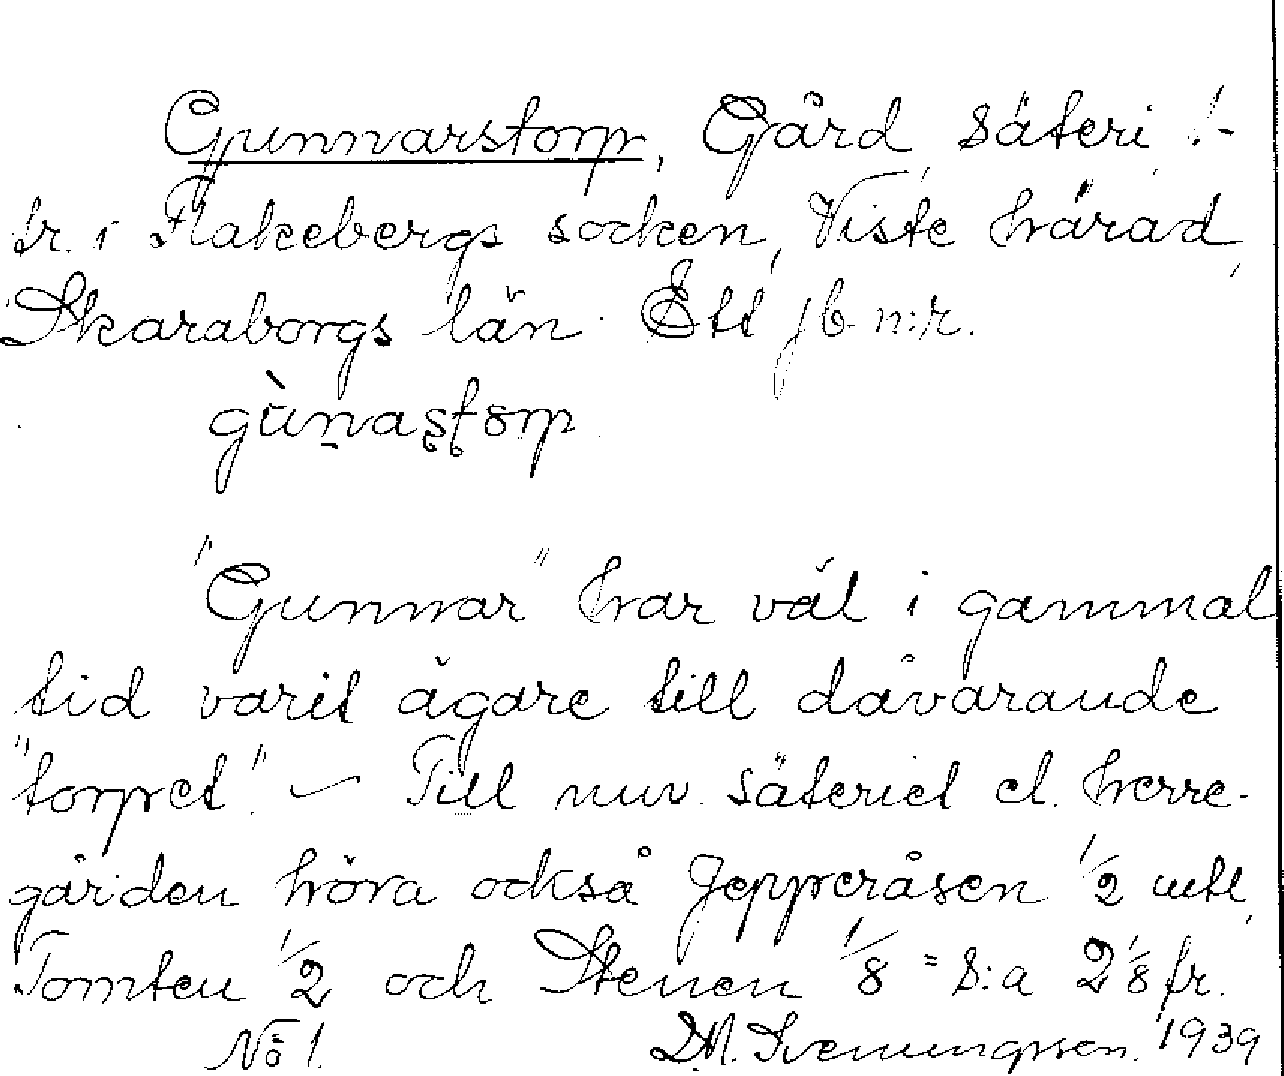 Gunnarstorp, Gård, säteri 1
fr. i Flakebergs socken, Viste härad,
Skaraborgs län. Ett jb. n:r.
gùn̠aşţorp
"Gunnar" har väl i gammal
tid varit ägare till dåvarande
"torpet". – Till nuv. säteriet el. herre-
gården höra också Jepperåsen 1/2 mtl,
Tomten 1/2 och Stenen 1/8 = S:a 2 1/8 fr.
No 1. D.M. Svenungsson. 1939